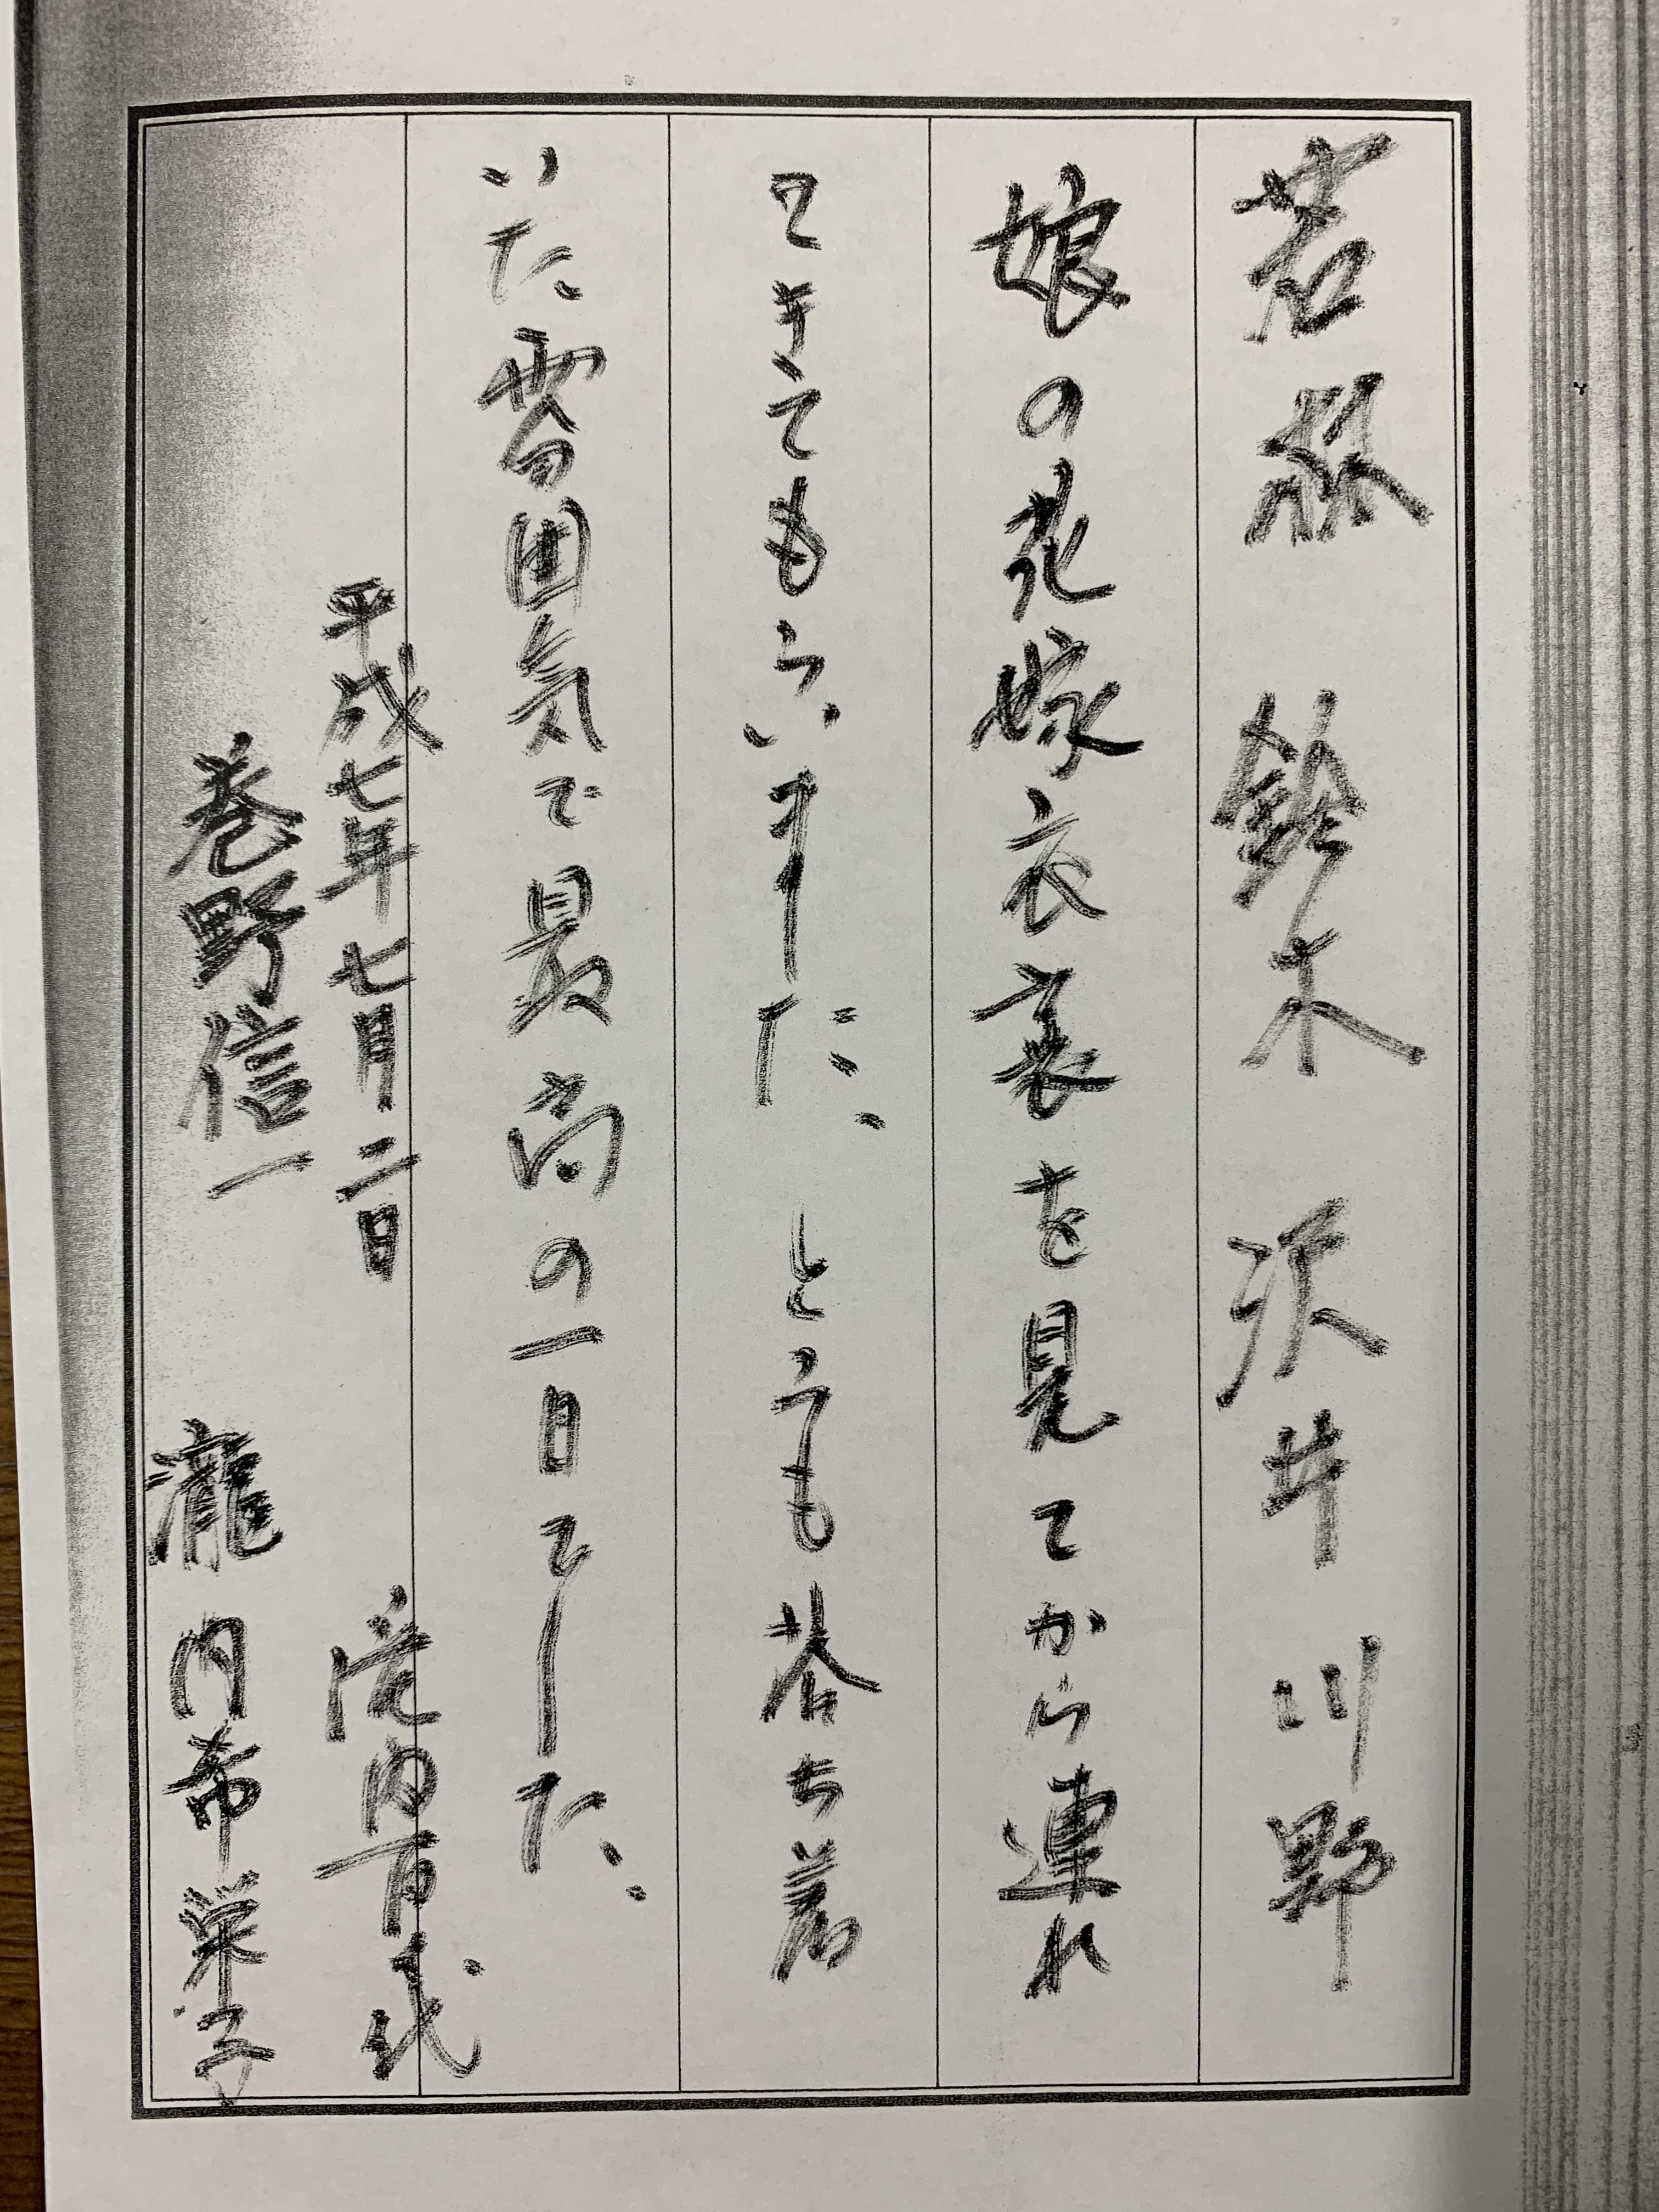 若林 鈴木 沢井 川野
娘の花嫁衣裳を見てから連れ
てきてもらいました。とうても落ち着
いた雰囲気で最高の一日でした。
平成七年七月二日
内百代
巻野信一 瀧内希栄子